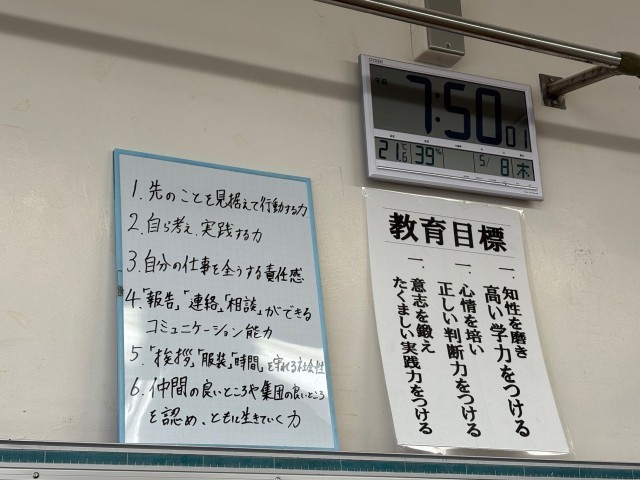 CITIZEN
午前
7:50 01
21.6℃ 39% 5/8 木
1. 先のことを見据えて行動する力
2. 自ら考え、実践する力
3. 自分の仕事を全うする責任感
4. 「報告」「連絡」「相談」ができる
コミュニケーション能力
5. 「挨拶」「服装」「時間」を守れる社会性
6. 仲間の良いところや集団の良いところ
を認め、ともに生きていく力
教育目標
一、知性を磨き
高い学力をつける
一、心情を培い
正しい判断力をつける
一、意志を鍛え
たくましい実践力をつける